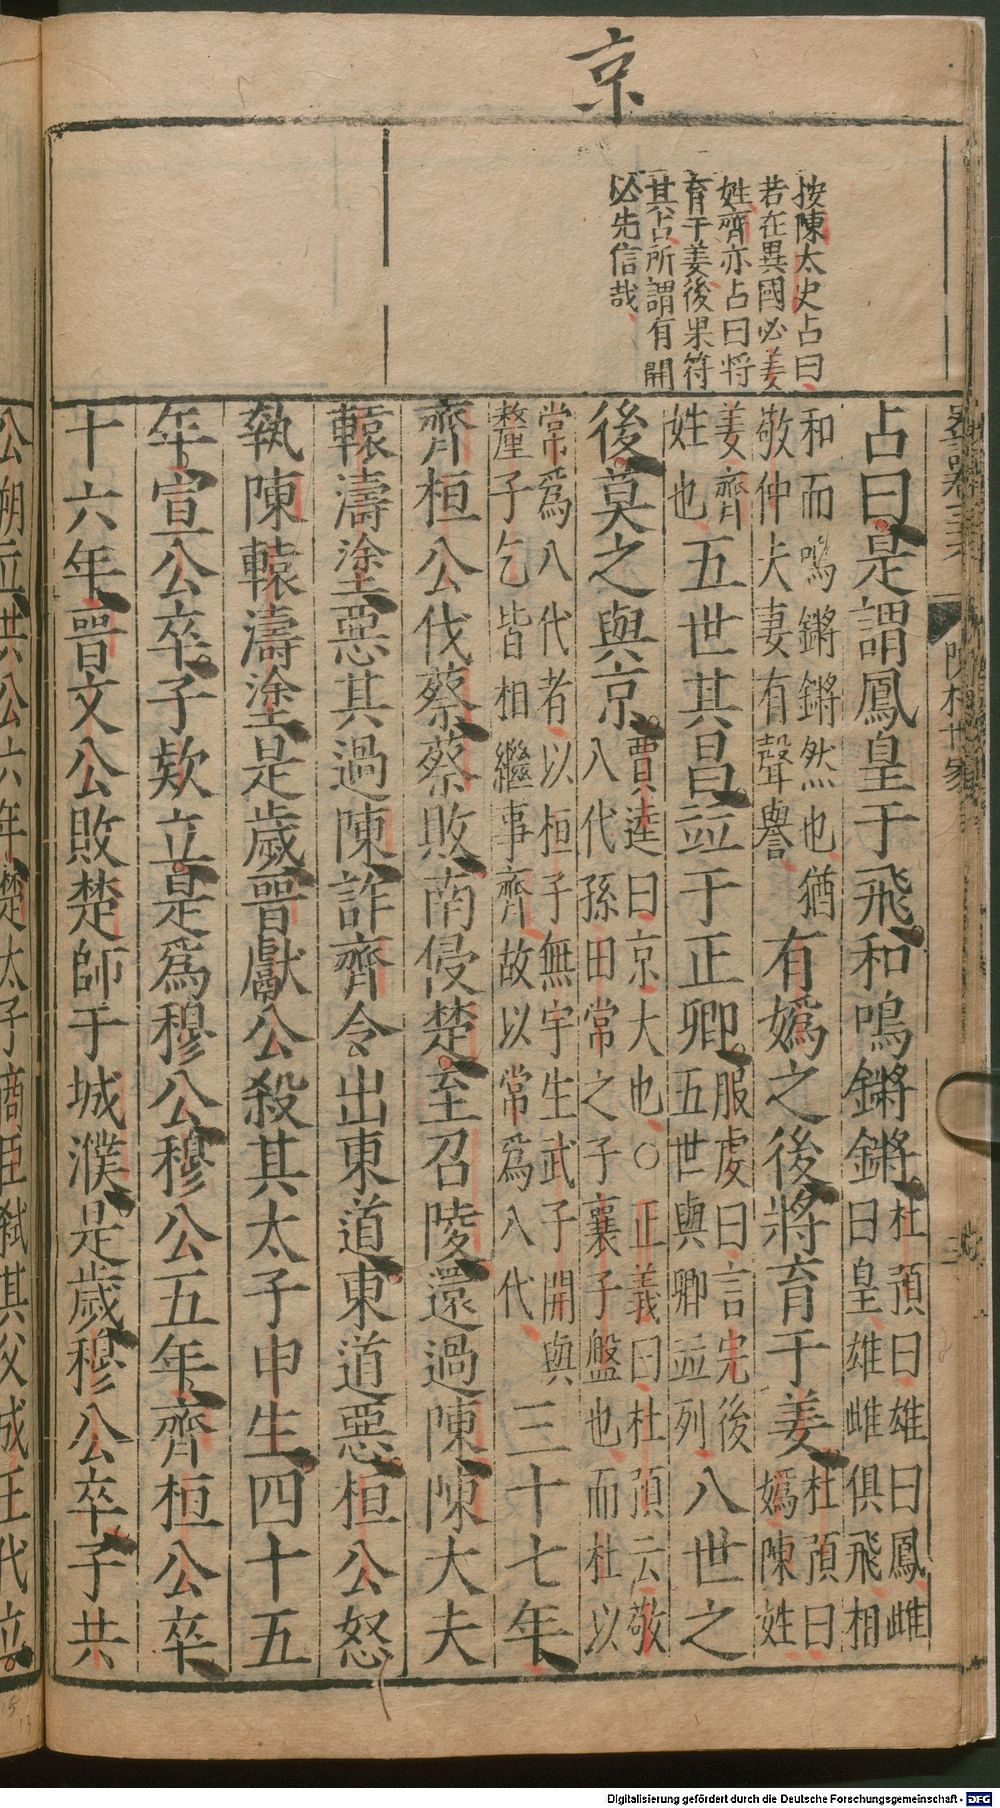 京
按陳太史占曰
若在異國必姜
姓齊亦占曰将
育于姜後果符
其占所謂有開
必先信哉
占曰是謂鳳皇于飛和鳴鏘鏘杜預曰雄曰鳳雌
曰皇雄雌俱飛相
和而鳴鏘鏘然也猶
敬仲夫妻有聲譽
有嬀之後將育于姜杜預曰
嬀陳姓
姜齊
姓也
五世其昌竝于正卿服虔曰言完後
五世與卿竝列
八世之
後莫之與京賈逵曰京大也○正義曰杜預云敬
八代孫田常之子襄子盤也而杜以
常爲八代者以桓子無宇生武子開與
釐子乞皆相繼事齊故以常爲八代
三十七年
齊桓公伐蔡蔡敗南侵楚至召陵還過陳陳大夫
轅濤塗惡其過陳詐齊令出東道東道惡桓公怒
執陳轅濤塗是歲晉獻公殺其太子申生四十五
年宣公卒子欵立是爲穆公穆公五年齊桓公卒
十六年晉文公敗楚師于城濮是歲穆公卒子共
公朔立共公六年楚太子商臣弑其父成王代立
Digitalisierung gefördert durch die Deutsche Forschungsgemeinschaft - DFG